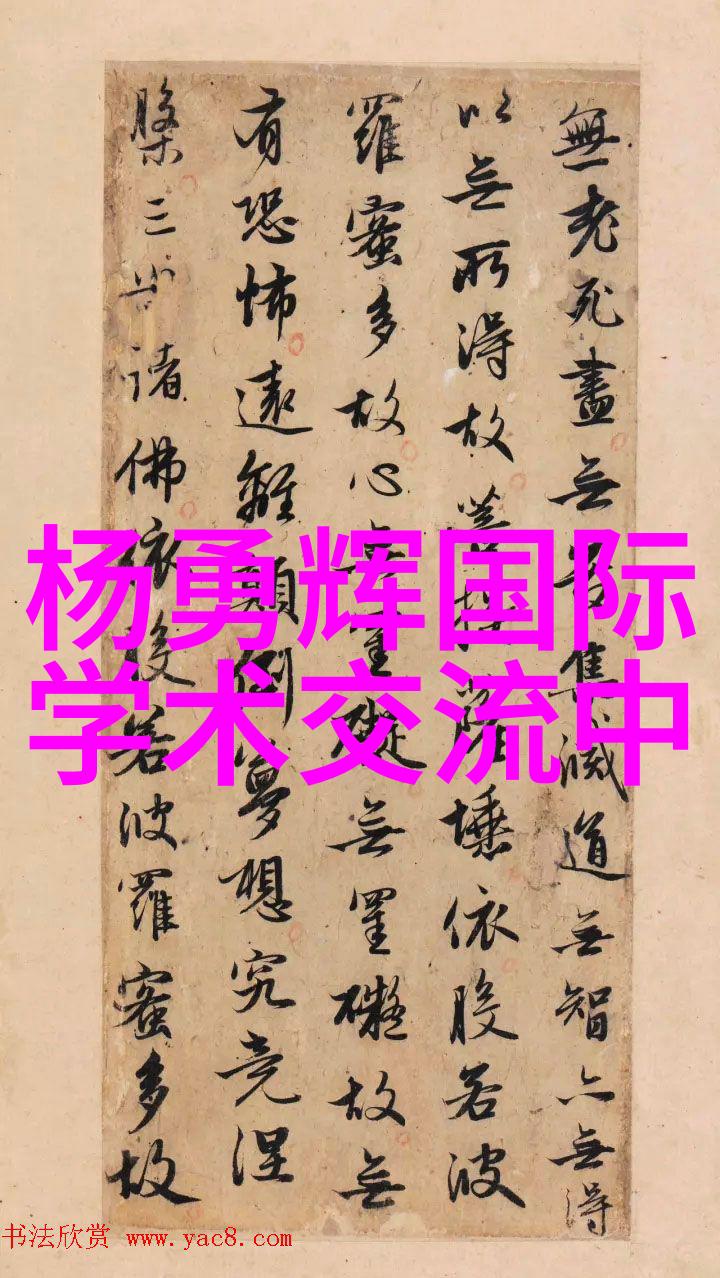 無老死盡無苦集滅道無智亦無得
以無所得故菩提薩埵依般若波
羅蜜多故心無罣礙無罣礙故無
有恐怖遠離顛倒夢想究竟涅
槃三世諸佛依般若波羅蜜多故
杨勇辉国际
学术交流中
书法欣赏 www.yac8.com